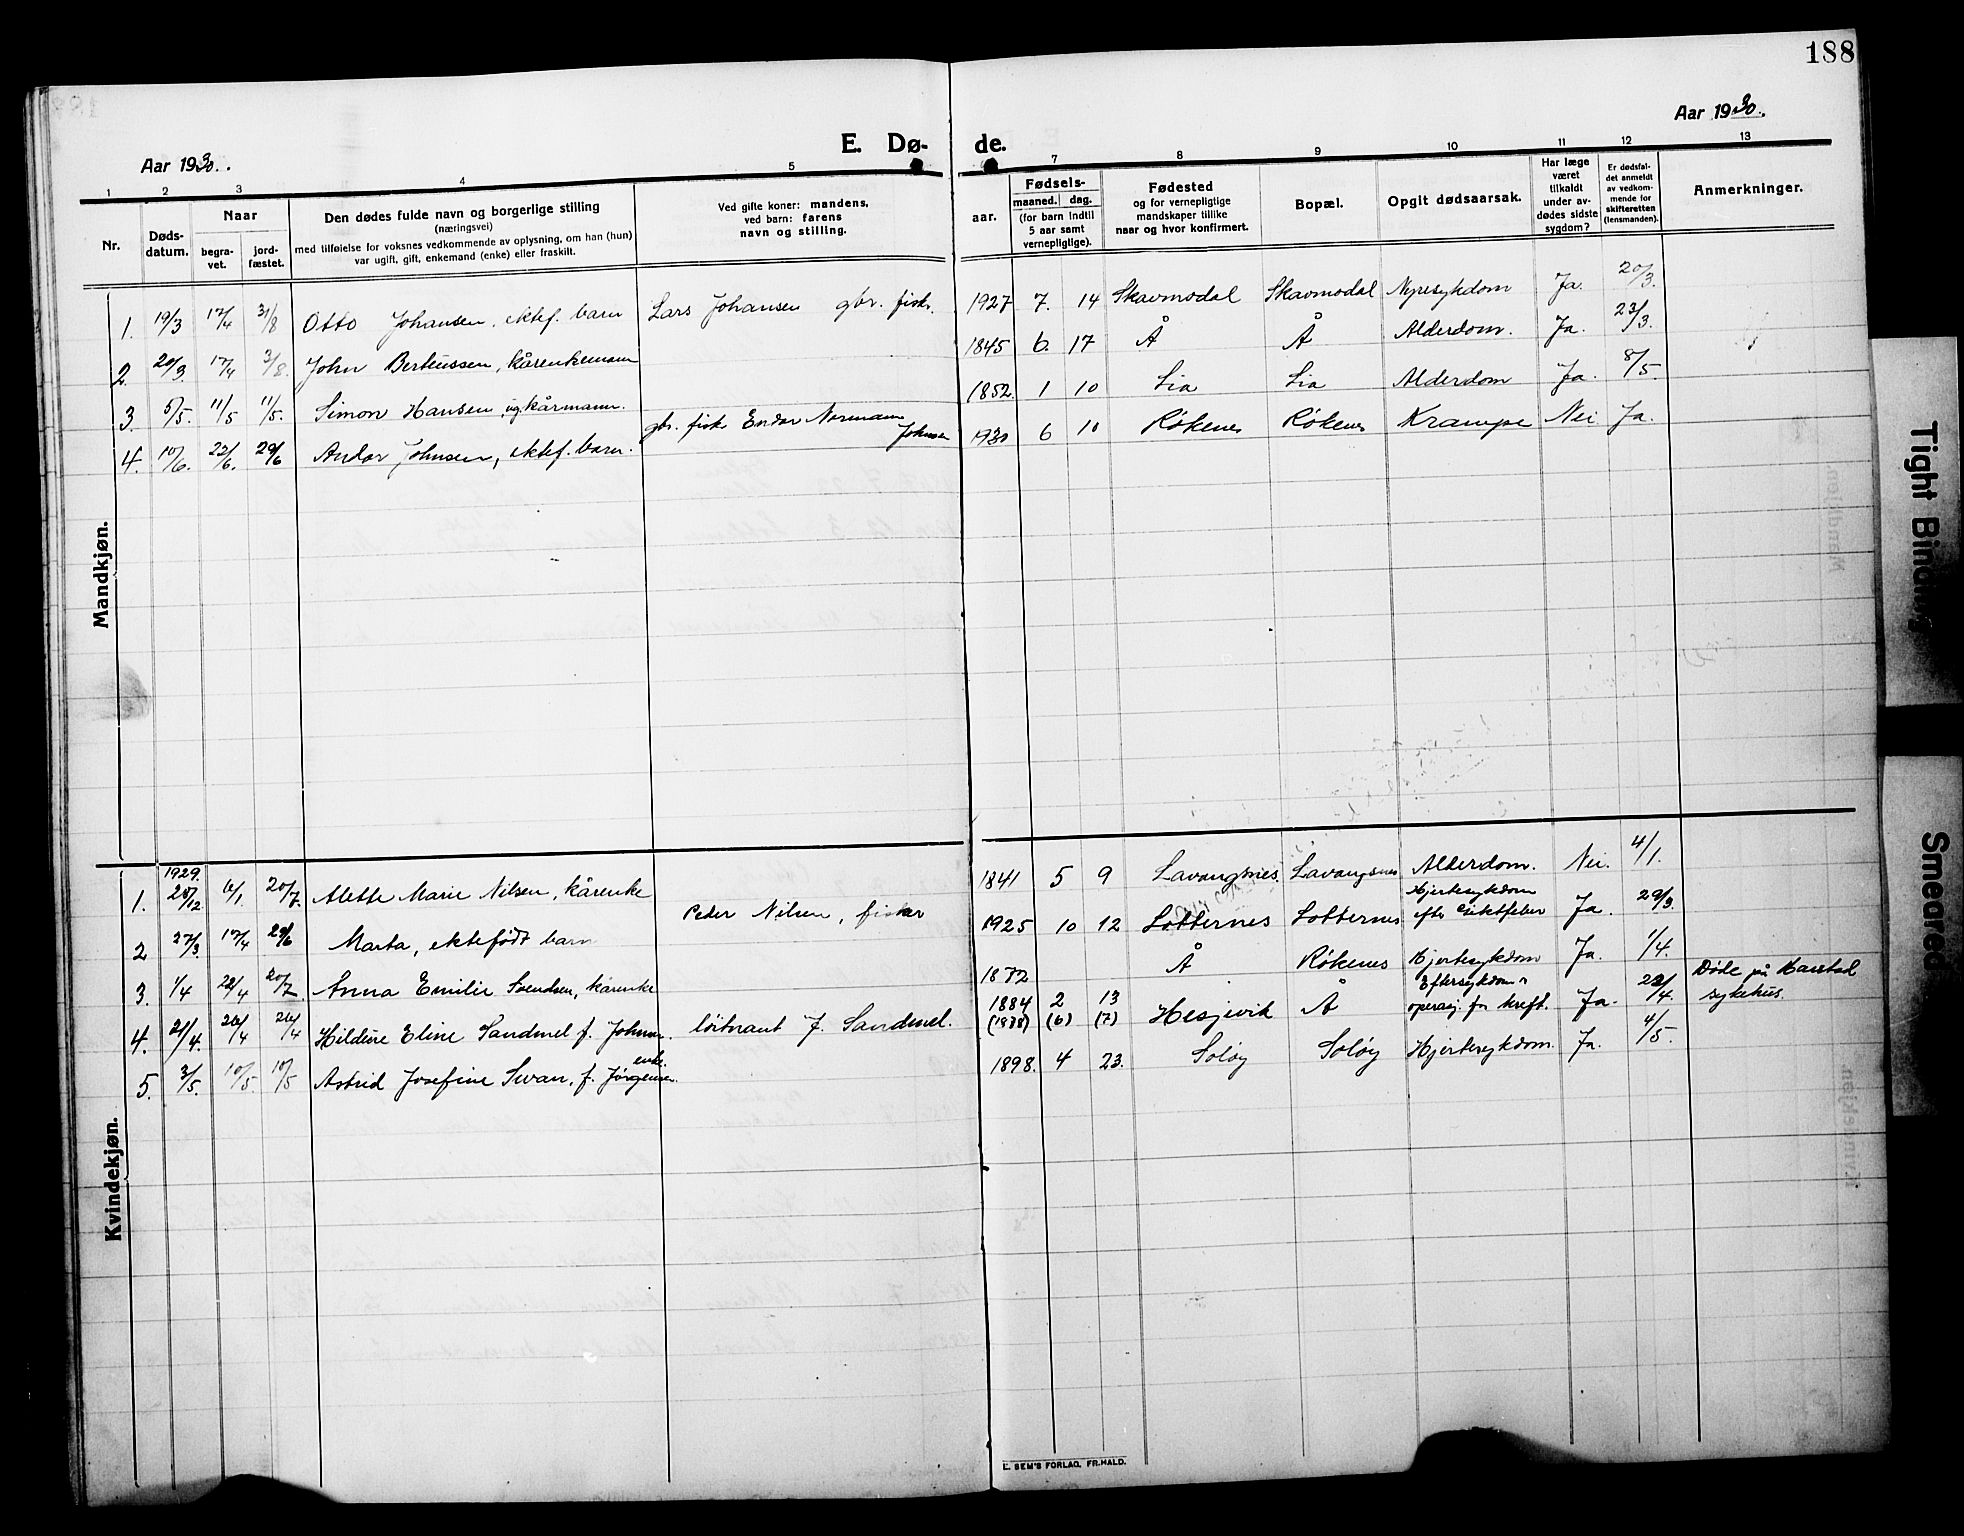 188
Aar 1930.
E. Dø-
de.
Aar 1930.
1 2 3 4 5
7 8 9 10 11 12 13
Nr.
Døds-
datum.
Naar
begra-
vet.
jord-
fæstet.
Den dødes fulde navn og borgerlige stilling
(næringsvei)
med tilføielse for voksnes vedkommende av oplysning, om han (hun)
var ugift, gift, enkemand (enke) eller fraskilt.
Ved gifte koner: mandens,
ved barn: farens
navn og stilling.
aar.
Fødsels-
maaned. dag.
(for barn indtil
5 aar samt
vernepligtige).
Fødested
og for vernepligtige
mandskaper tillike
naar og hvor konfirmert.
Bopæl.
Opgit dødsaarsak.
Har læge
været
tilkaldt
under av-
dødes sidste
sygdom?
Er dødsfal-
det anmeldt
av vedkom-
mende for
skifteretten
(lensmanden).
Anmerkninger.
Mandkjøn.
1. 19/3 17/4 31/8 Otto Johansen, ektef. barn Lars Johansen gbr. fisk. 1927 7. 14 Skavmodal Skavmodal Nyresykdom Ja. 20/3.
2. 20/3. 17/4 3/8. John Berteussen, kårenkemann 1845 6. 17 Å Å Alderdom. Ja. 23/3.
3. 5/5. 11/5 11/5. Simon Hansen, ug. kårmann. 1852 1 10 Lia Lia Alderdom Ja. 8/5.
4. 10/6. 23/6. 29/6 Andor Johnsen, ektef. barn. gbr. fisk. Endor Normann
Johnsen 1930 6 10 Røkenes Røkenes Krampe Nei Ja.
Kvindekjøn.
1929.
1. 28/12 6/1. 20/7. Alette Marie Nilsen, kårenke 1841 5 9 Lavangsnes. Lavangsnes Alderdom. Nei. 4/1.
2 27/3 17/4 29/6 Marta, ektefødt barn Peder Nilsen, fisker 1925 10 12 Lotternes Lotternes Hjertesykdom
efter Giktfeber Ja. 29/3.
3. 1/4 22/4 20/7. Anna Emilie Svendsen, kårenke 1872 Å Røkenes Hjertesykdom Ja. 1/4.
4. 21/4. 26/4 26/4 Hildine Eline Sandmel f. Johnsen. løitnant J. Sandmel. 1884 2 13
(1888) (6) (7) Hesjevik Å Eftersykdom
operasj. for kreft. Ja. 22/4. Døde på Harstad
sykehus.
5. 3/5. 10/5. 10/5 Astrid Josefine Svan, f. Jørgensen. enke. 1898. 4 23. Soløy Soløy Hjertesykdom. Ja. 4/5.
E. SEM'S FORLAG, FR.HALD.
Tight Binding
Smeared